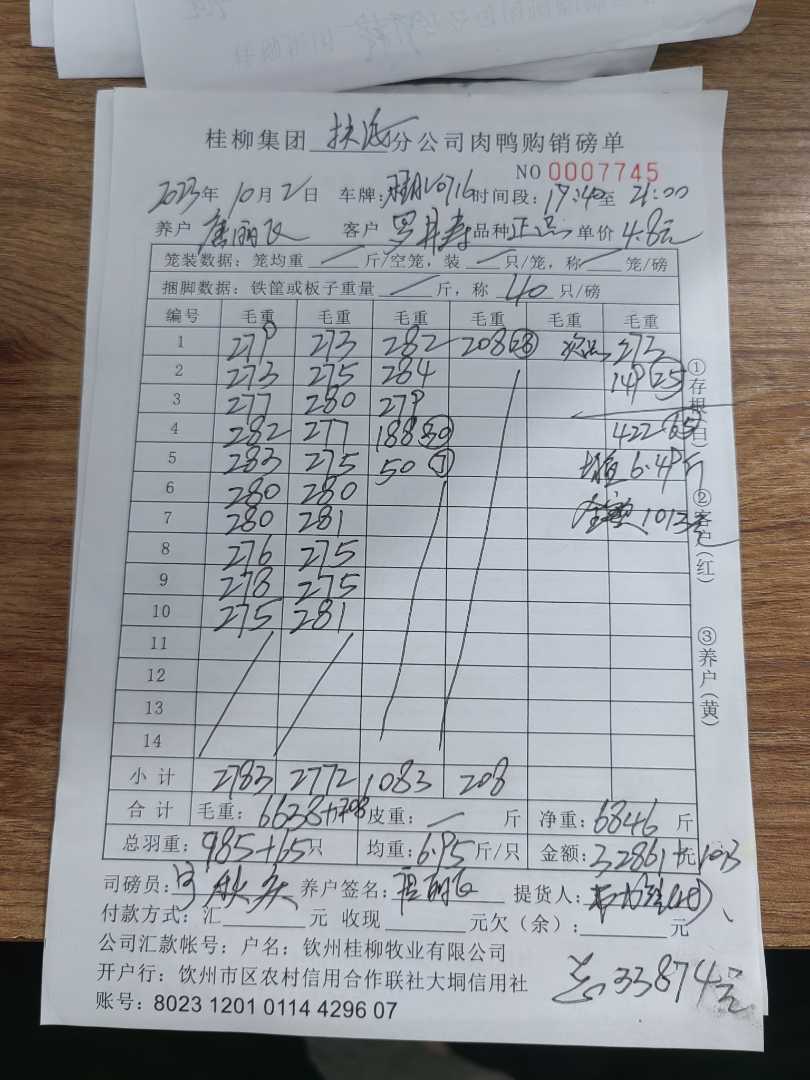 桂柳集团 扶 分公司肉鸭购销磅单
NO 0007745
2023年 10月2日 车牌: 0716 时间段: 17:40至 21:00
养户 唐丽 客户 罗 寿 品种 正品 单价 4.8元
笼装数据: 笼均重 斤/空笼, 装 只/笼, 称 笼/磅
捆脚数据: 铁筐或板子重量 斤, 称 40 只/磅
编号 毛重 毛重 毛重 毛重 毛重 毛重
1 279 273 282 208 28 次品 273
2 273 275 284 149 25
3 277 280 279
4 282 277 188 30 422 65
5 283 275 50 7 均重 6.49斤
6 280 280
7 280 281 金额 1013元
8 276 275
9 278 275
10 275 281
11
12
13
14
小计 2783 2772 1083 208
合计 毛重: 6638+208 皮重: 斤 净重: 6846 斤
总羽重: 985+65只 均重: 6.95斤/只 金额: 32861元 1013
司磅员: 养户签名: 唐丽 提货人:
付款方式: 汇 元 收现 元欠(余): 元
公司汇款帐号: 户名: 钦州桂柳牧业有限公司
开户行: 钦州市区农村信用合作联社大垌信用社
总33874元
账号: 8023 1201 0114 4296 07
①存根(白)
②客户(红)
③养户(黄)